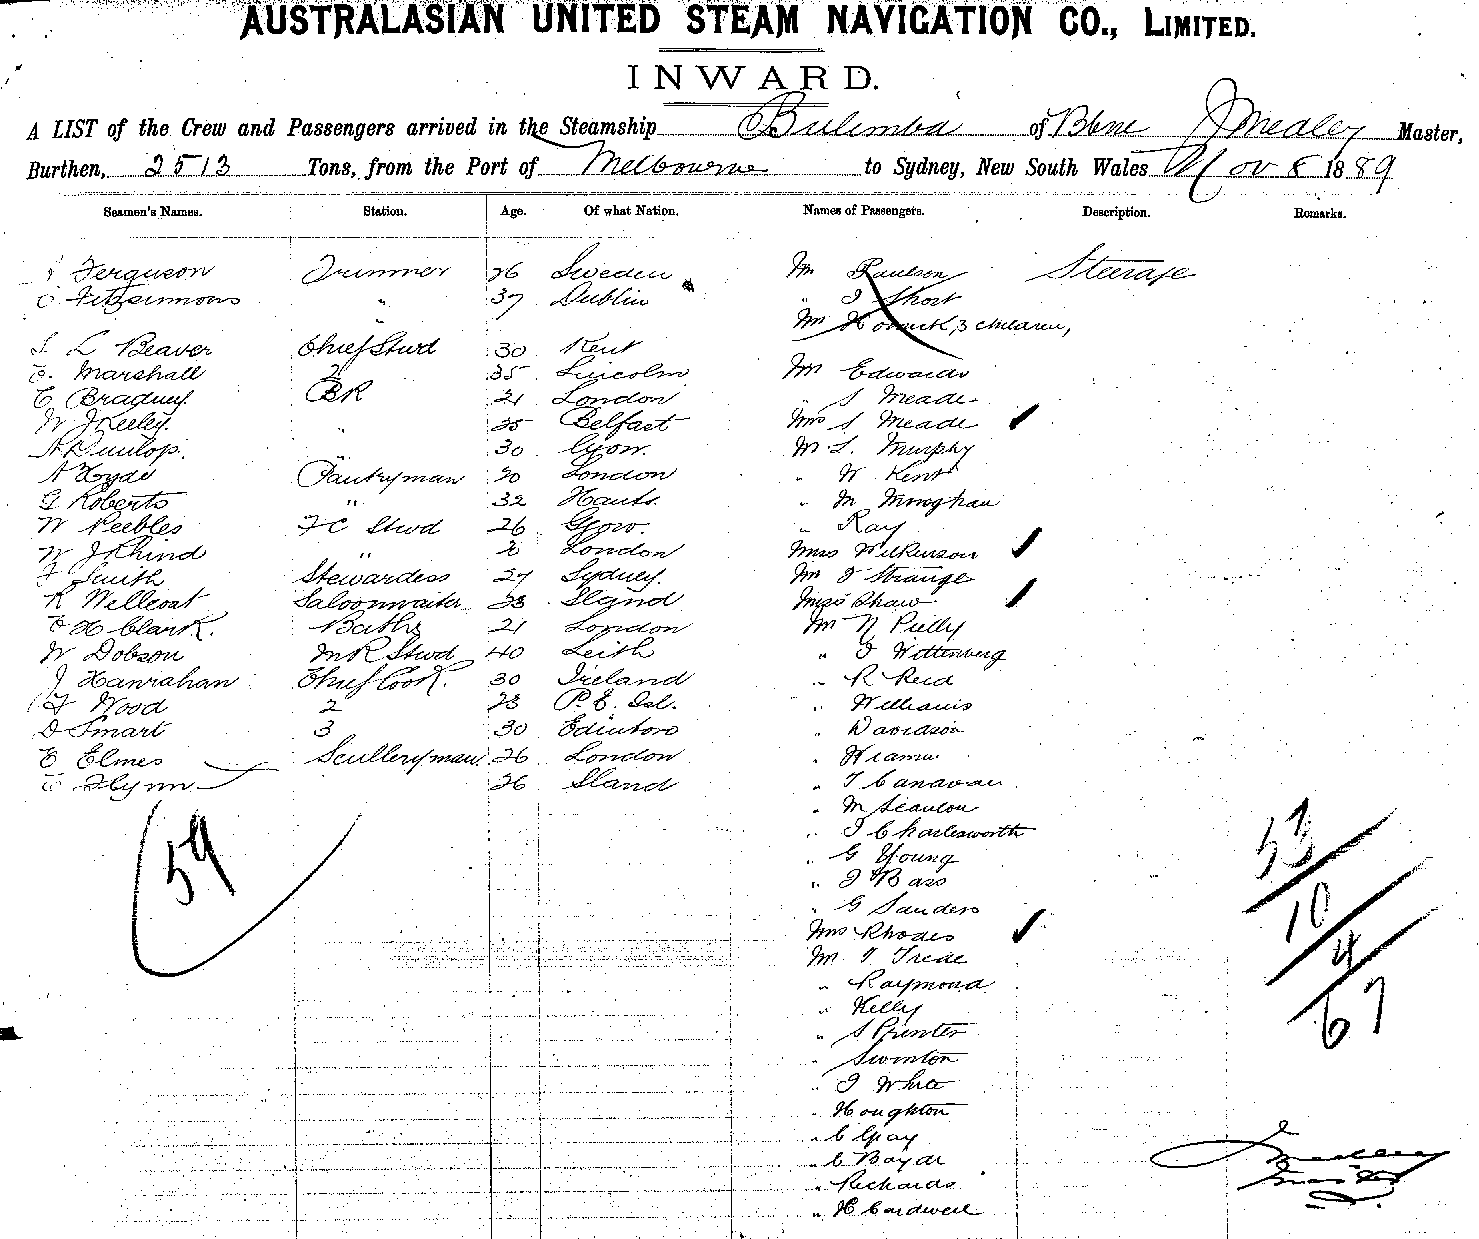 AUSTRALASIAN UNITED STEAM NAVIGATION CO., LIMITED.
INWARD.
A LIST of the Crew and Passengers arrived in the Steamship Bulimba of Bbne J Mealey Master,
Burthen, 2513 Tons, from the Port of Melbourne to Sydney, New South Wales Nov 8 1889
Seamen's Names. Station. Age. Of what Nation. Names of Passengers. Description. Remarks.
Ferguson Trimmer 26 Sweden Mr Paulson Steerage
C Fitzsimmons " 37 Dublin " J Short
" Mrs Hornick, 3 children,
S L Beaver Chief Stwd 30 Kent
E. Marshall 2 35 Lincolm Mr Edwards
C Bradney BR 21 London " S Meade
W J Keeley " 25 Belfast Mrs S Meade
A Dunlop. " 30 Gow. Mr L. Murphy
A Hyde Pantryman 20 London " W Kent
G Roberts " 32 Hants. " M Monghan
W Peebles FC Stwd 26 Gow. " Ray
W J Rhind " 2 London Miss Wilkinson
F Smith Stewardess 27 Sydney. Mr J Strange
R Wellcoat Saloonwaiter 23 Sland Miss Shaw
F H Clark. Baths 21 London Mr N Pielly
W Dobson MR Stwd 40 Leith " J Wittenberg
J Hanrahan Chief Cook. 30 Ireland " R Reid
F Wood 2 23 P. E. Isl. " Williams
D Smart 3 30 Edinboro " Davidson
E Elmes Scullery man 26 London "
E Flynn 26 Sland " T Canavan
" M Scanlon
59 " J Charlesworth 53
" G Young
" J Bass
" G Sanders 10
Mrs Rhodes
Mr T Trede 4
" Raymond
" Kelly 67
" S Printer
" Swinton
" J White
" Houghton
" C Gray
" C Bayar J Mealey
" Richards Master
" H Cardwell